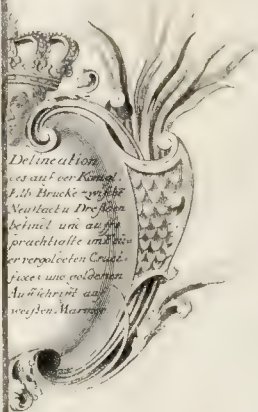 Delineation
des auf der Königl.
Elb Brücke zwischẽ
Neustadt u Dreßden
befindl. und aufs
prachtigste im Feü-
er vergoldten Cruci-
fixes und goldenen
Aufschrifft auf
weißen Marmor